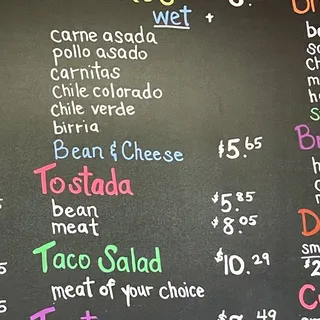 wet +
carne asada
pollo asado
carnitas
chile colorado
chile verde
birria
Bean & Cheese $5.65
Tostada
bean $5.85
meat $8.05
Taco Salad $10.29
meat of your choice